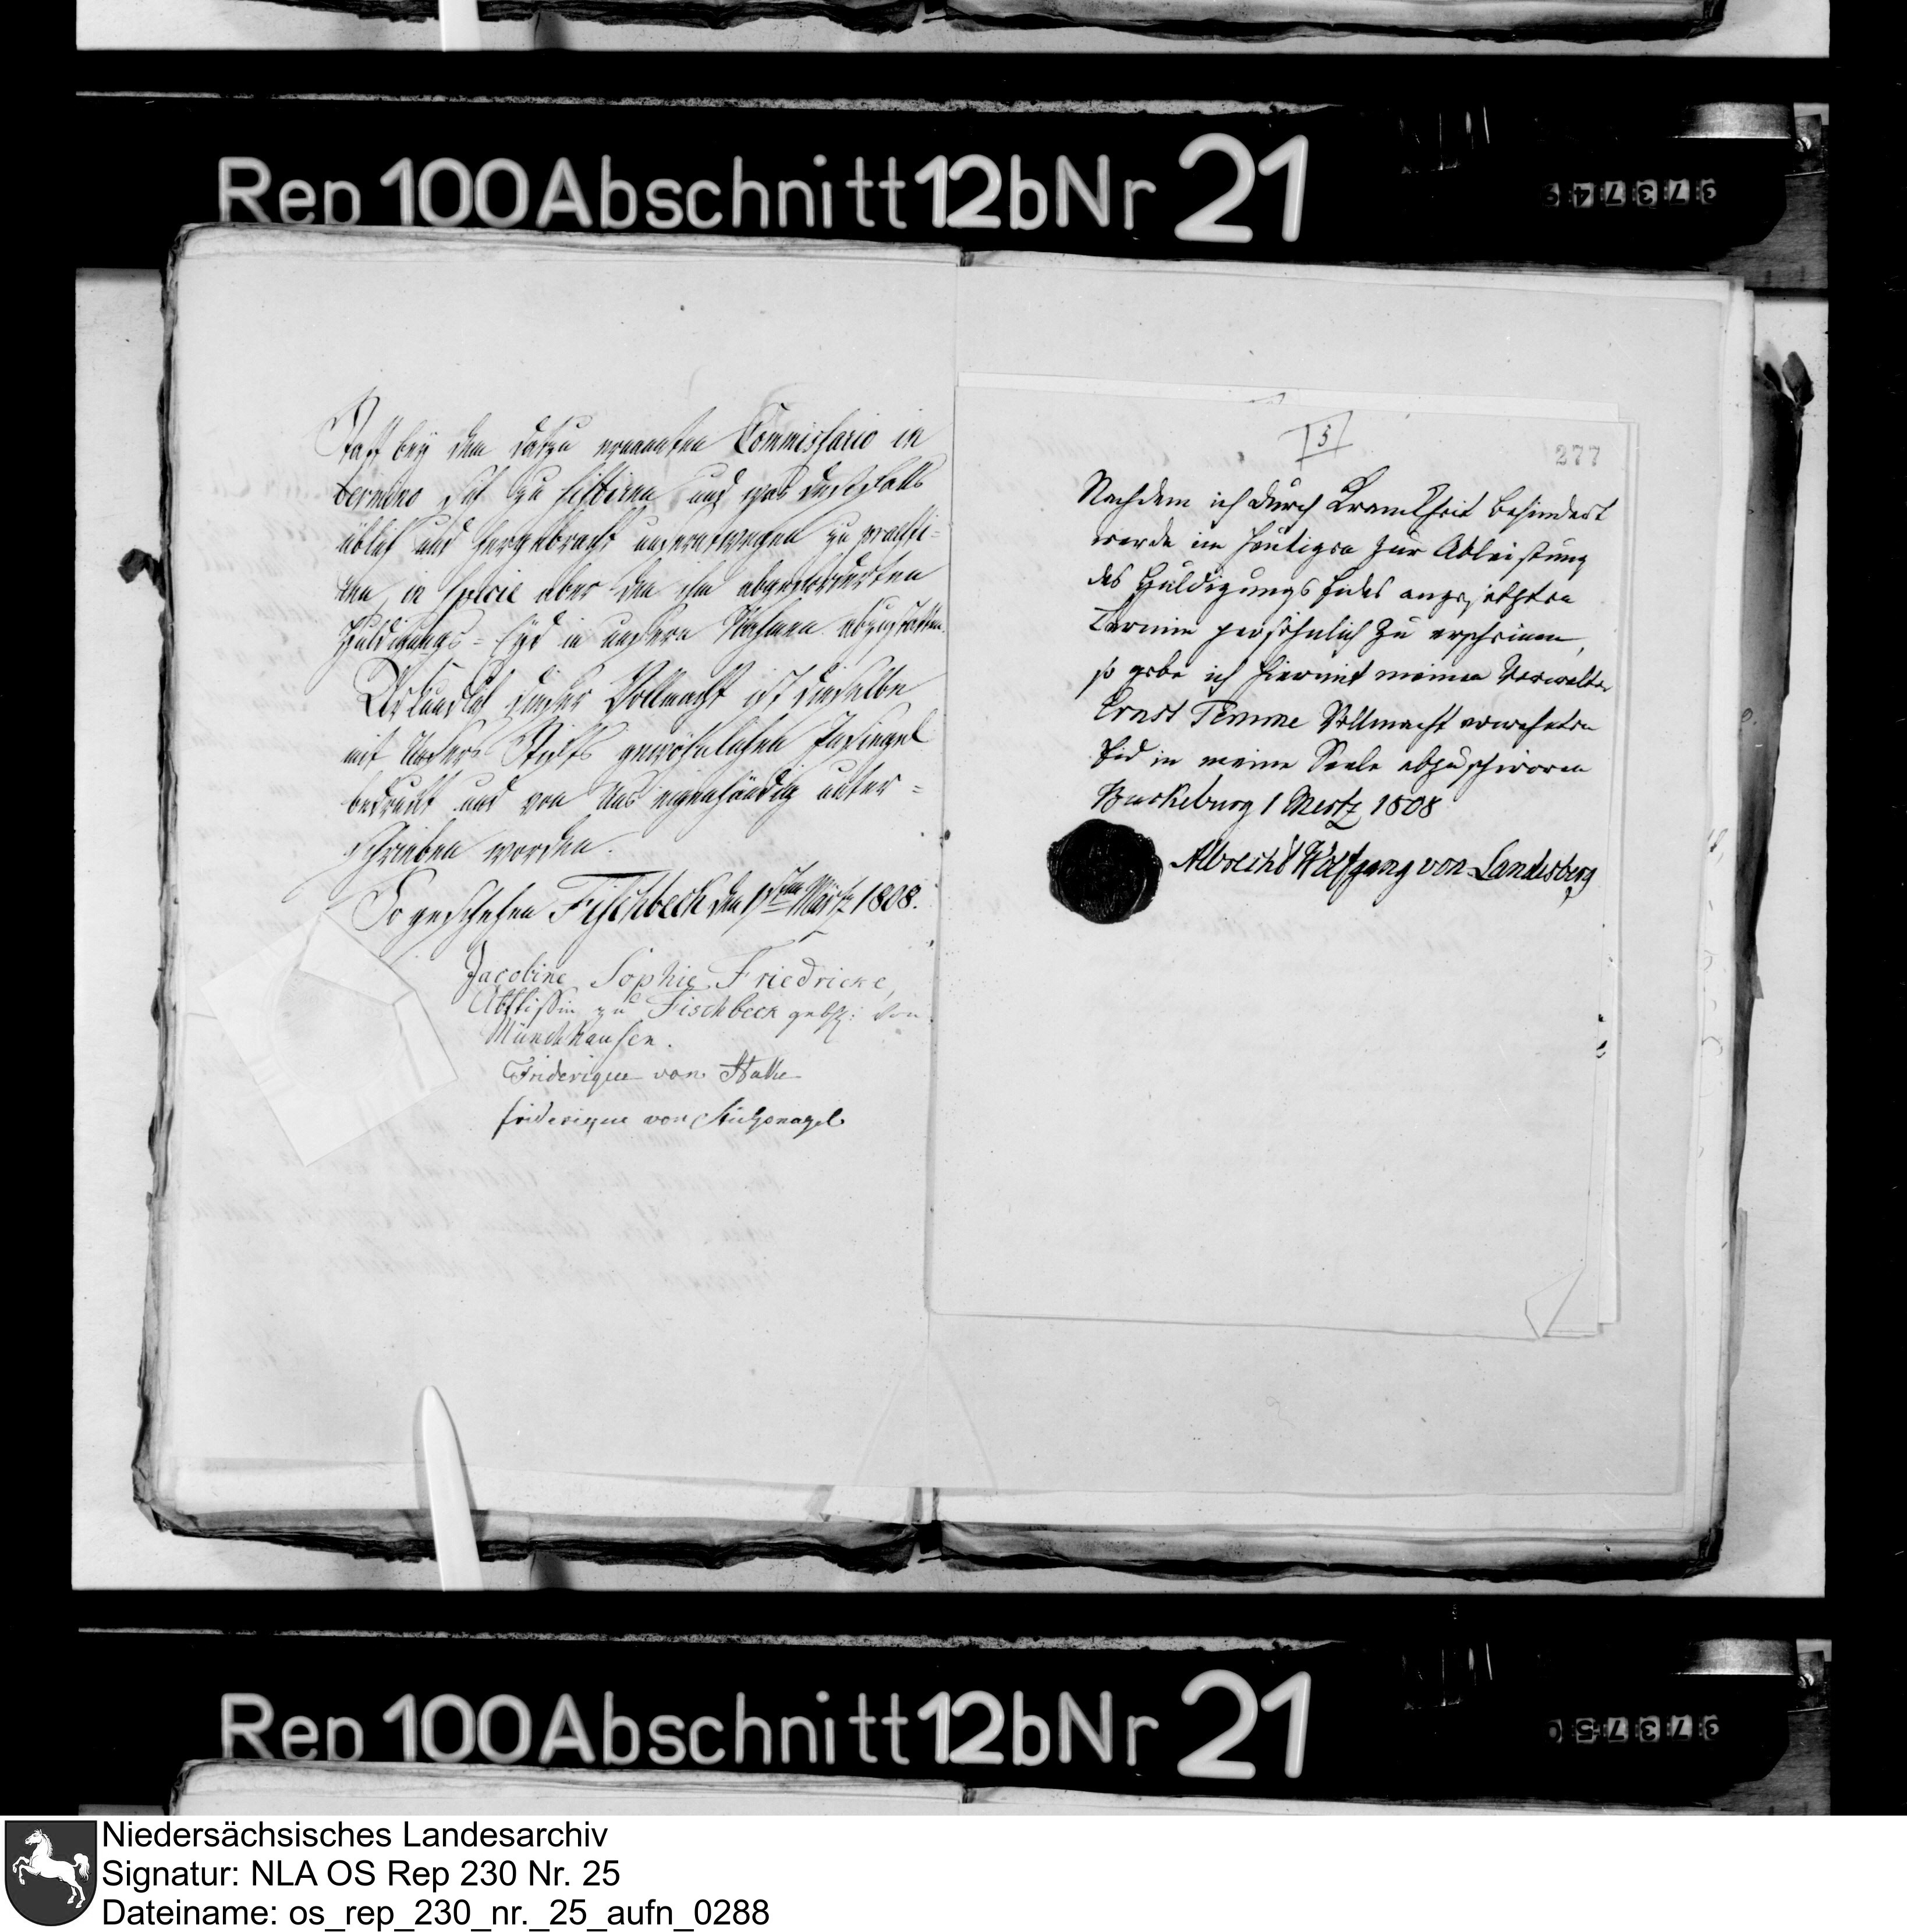 Rep 100 Abschnitt 12b Nr 21
Statt bey dem dazu ernannten Commissario in
termino sich zu sistiren und was desfalls
üblich und hergebracht unsertwegen zu praesti-
ren, in specie aber den ihm abgeforderten
Huldigungs-Eyd in unsern Nahmen abzustatten.
Urkundlich dieser Vollmacht ist dieselbe
mit Unsers Stifts gewöhnlichen Insiegel
bedruckt und von Uns eigenhändig unter-
schrieben worden.
So geschehen Fischbeck den 1sten Märtz 1808.
Jacobine Sophie Friedricke,
Abtissin zu Fischbeck gebh: von
Münchhausen.
Friderique von Hake
friderique von
5
277
Nachdem ich durch Kranckheit behindert
werde im heutigen zur Ableistung
des Huldigungs Eides angesetzten
Termin persöhnlich zu erscheinen,
so gebe ich hiermit meinen Verwalter
Ernst Temme Vollmacht erwehnten
Eid in meine Seele abzuschwören
Buckeburg 1 Mertz 1808
Albrecht Wolfgang von Landesberg
Rep 100 Abschnitt 12b Nr 21
Niedersächsisches Landesarchiv
Signatur: NLA OS Rep 230 Nr. 25
Dateiname: os_rep_230_nr._25_aufn_0288